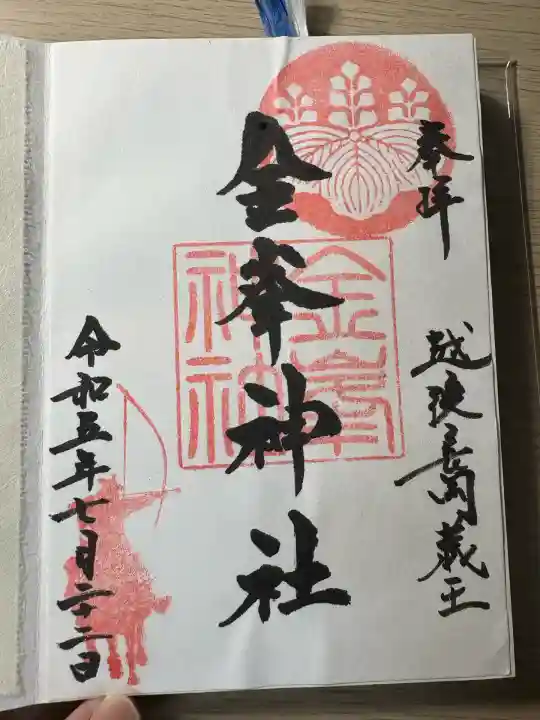 奉拝
越後長岡蔵王
金峯神社
金峯神社
令和五年七月二十二日